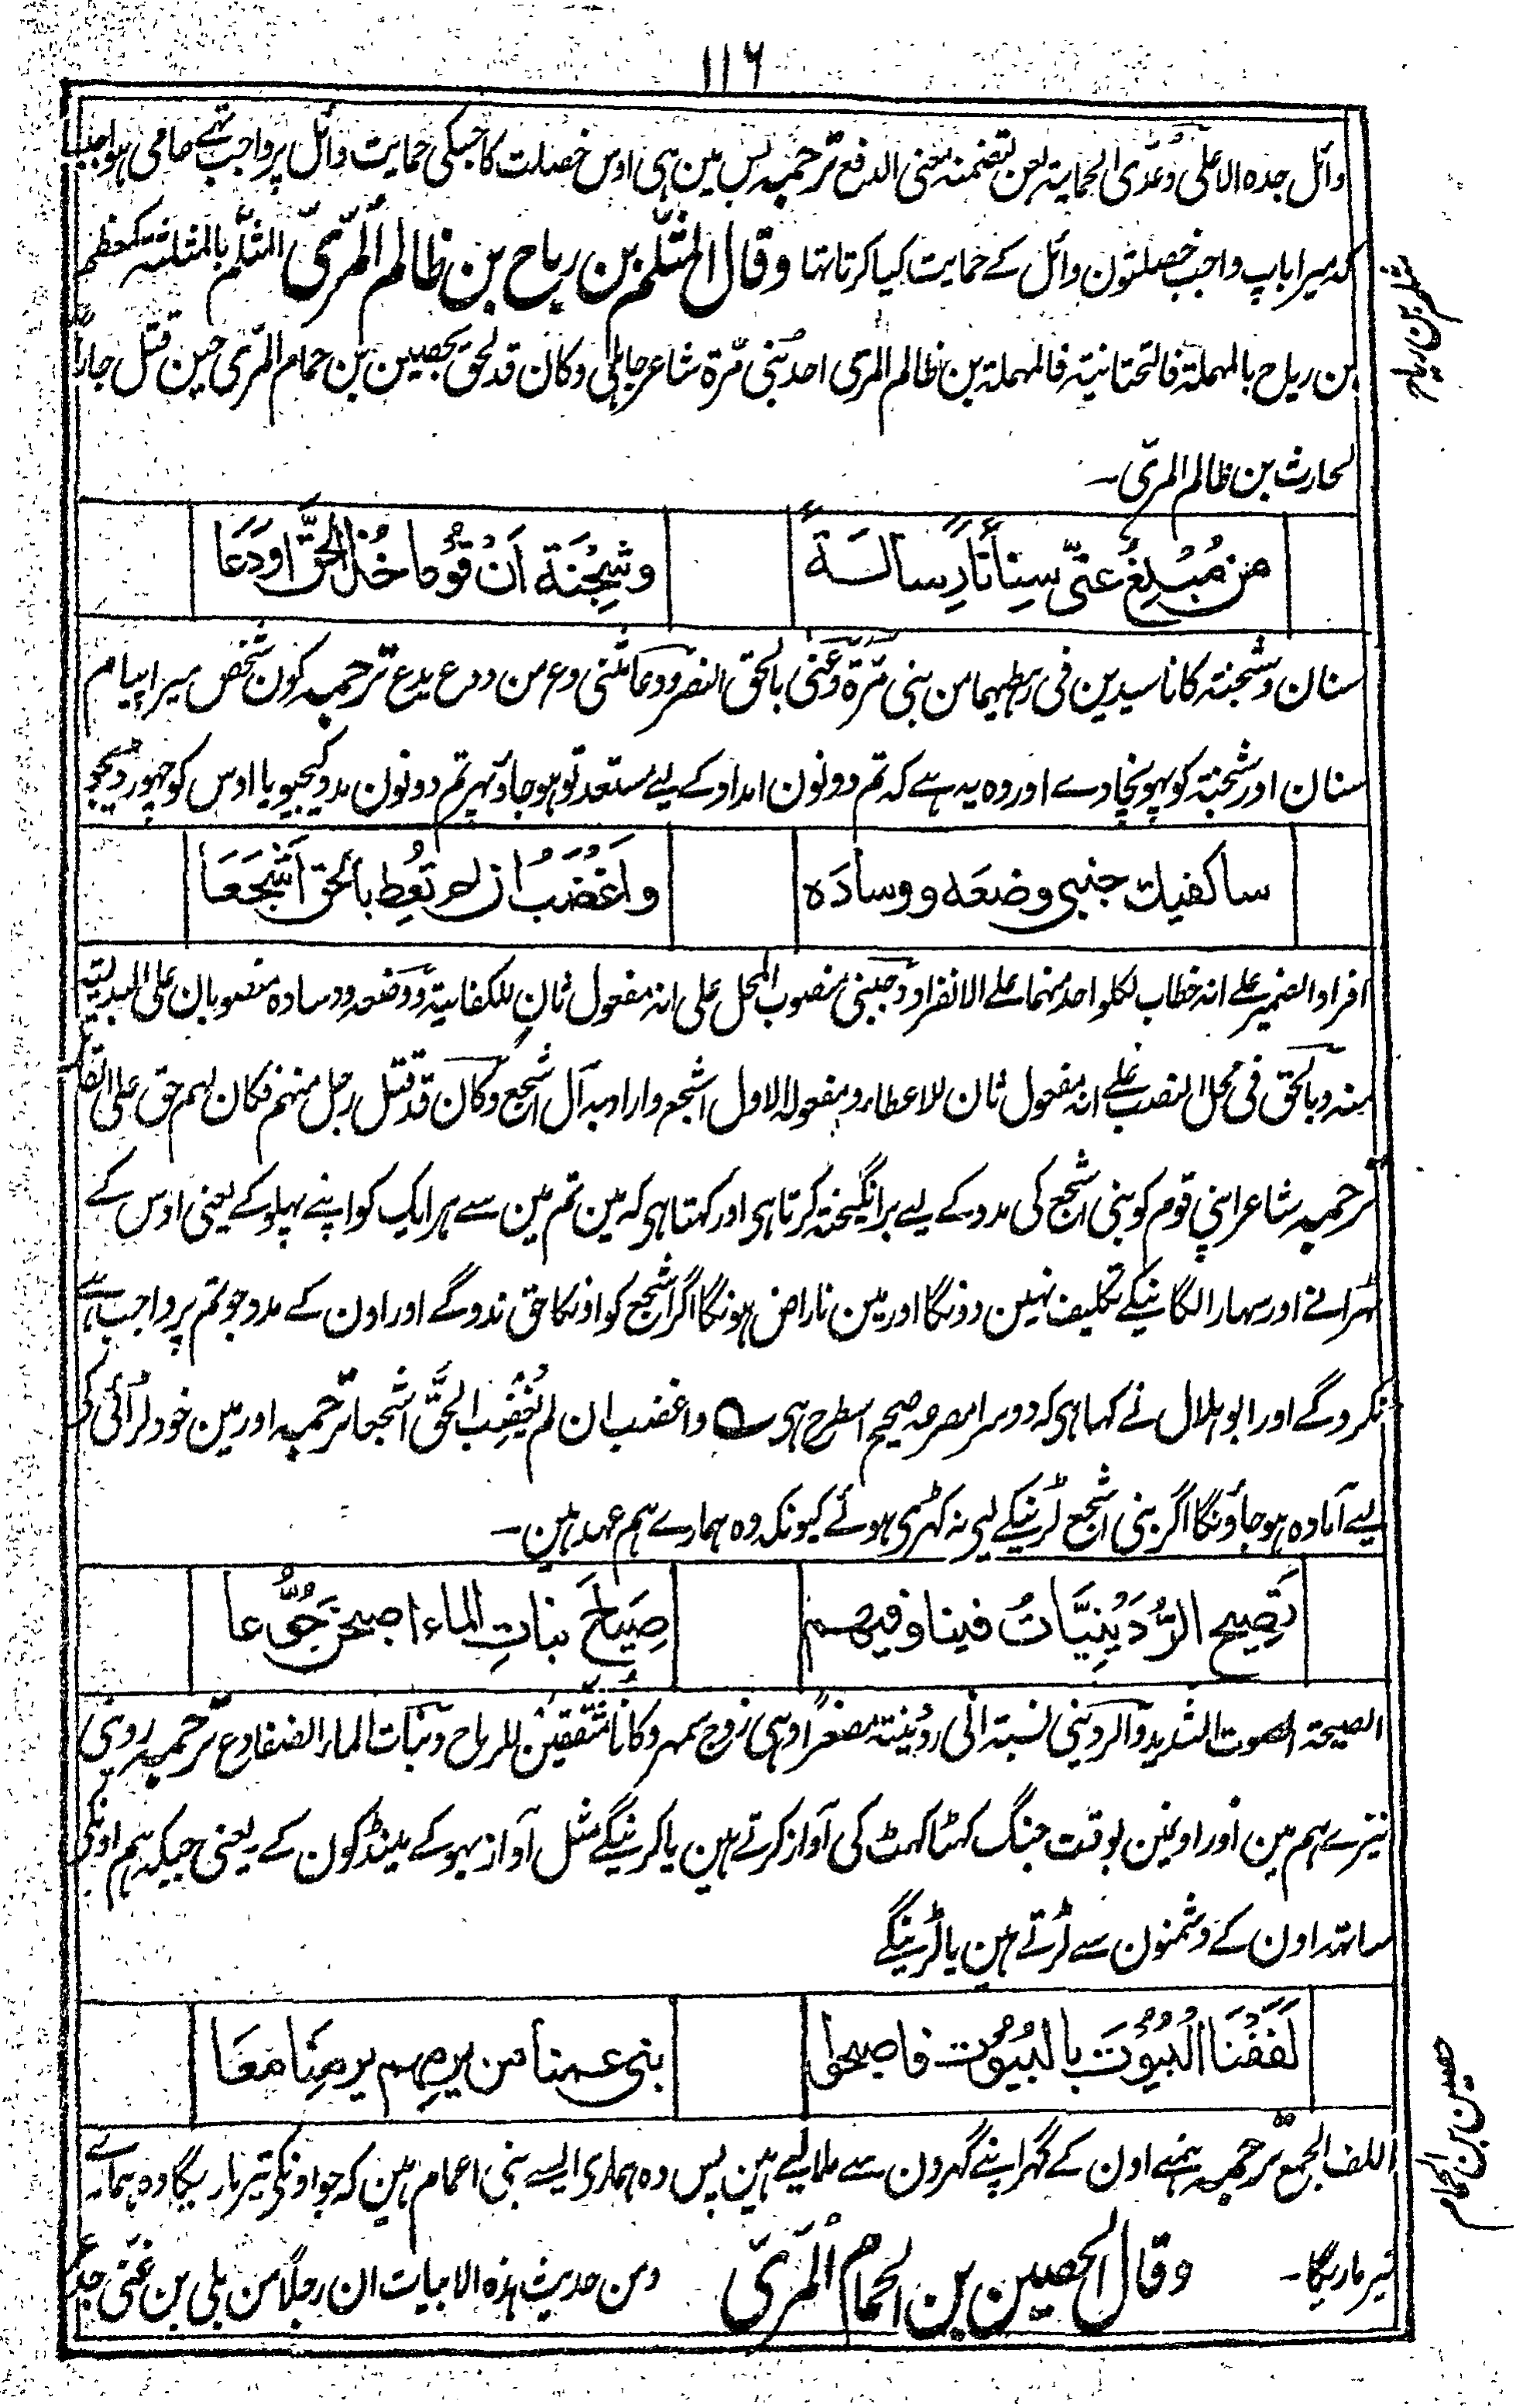 ۱۱۶
وائل جدہ الاعلی وعُدّی الحمایۃ بعن لتضمنہ معنی الدفع ترجمہ بس مین ہی اوس خصلت کا جسکی حمایت وائل پر واجب تہے حامی ہوا جیسا
کہ میرا باپ واجب خصلتون وائل کے حمایت کیا کرتا تہا وقال المثلّم بن رباح بن ظالم المرّیّ المثلّم بالمثلثۃ کمعظم
بن ریاح بالمہملۃ فالتحتانیۃ فالمہملۃ بن ظالم المری احد بنی مرّۃ شاعر جاہلی وکان قد لحق بحصین بن حمام المرّی حین قتل جاراً
لحارث بن ظالم المرّی۔
مَن مُبْلِغٌ عنّی سِناناً رِسالَةً
وشِجْنَة اَنْ قُوْما خُذَا الحَقَّ اودَعَا
سنان وشجنۃ کانا سیدین فی رہطیہما من بنی مرّۃ وعنی بالحق النصر ودعا تثنی دع من ودع یدع ترجمہ کون شخص میرا پیام
سنان اور شجنۃ کو پہونچادے اور وہ یہ ہے کہ تم دونون امداد کے لیے مستعد تو ہو جاؤ پہر تم دونون مدد کیجیو یا اوس کو چہوڑ دیجو
ساکفیك جنبی وضعَه ووسادَه
واَغْضَبُ ان لم تعُطِ بالحق اَشْجَعَا
افراد الضمیر علے انہ خطاب لکل واحد منہما علے الانفراد وجنبی منصوب المحل علی انہ مفعول ثانِ للکفایۃ ووضعہ ووسادہ منصوبان علی البدلیۃ
منہ وبالحق فی محل النصب علے انہ مفعول ثان للاعطاء ومفعولہ الاول اشجع واراد بہ آل اشجع وکان قد قتل رجل منہم فکان لہم حق علی
ترجمہ شاعر اپنی قوم کو بنی اشجع کی مدد کے لیے برانگیختہ کرتا ہی اور کہتا ہی کہ مین تم مین سے ہر ایک کو اپنے پہلو کے یعنی اوس کے
ٹہرانے اور سہارا لگانیکے تکلیف نہین دونگا اور مین ناراض ہونگا اگر اشجع کو اونکا حق ندو گے اور اون کے مدد جو تم پر واجب ہے
نکرو گے اور ابو ہلال نے کہا ہی کہ دوسرا مصرعہ صحیح اسطرح ہی ؎ واغضب ان لم تُغْضِب الحَقَّ اشجعا ترجمہ اور مین خود لڑائی کی
لیے آمادہ ہو جاؤنگا اگر بنی اشجع لڑنیکے لیی نہ کہڑی ہوئے کیونکہ وہ ہمارے ہم عہد ہین۔
تَصِیح الرُّدَیْنِیَّاتُ فینا وفیهم
صِیَاحَ بناتِ الماء اصبحن جُوَّعا
الصیحۃ الصوت الشدید والردینی نسبۃ الی ردینۃ مصغراً وہی زوج سمہر وکانا مُثَقِّفَیْن للرماح وبنات الماء الضفادع ترجمہ ردینی
نیزے ہم مین اور اونمین بوقت جنگ کہٹا کہٹ کی آواز کرتے ہین یا کرینگے مثل آواز بہوکے مینڈکون کے یعنی جبکہ ہم اونکی
ساتہہ اون کے دشمنون سے لڑتے ہین یا لڑینگے
لَفَفْنَا الْبُیُوْتَ بالبُیُوْت فاصبحوا
بنی عمنا من یرمِهم یرمِنَا مَعَا
اللف الجمع ترجمہ ہمنے اون کے گہر اپنے گہرون سے ملا لیے ہین پس وہ ہماری ایسے بنی اعمام ہین کہ جو اونکی تیر ماریگا وہ ہمارے
تیر ماریگا۔ وقال الحصین بن الحمام المرّیّ ومن حدیث ہذہ الابیات ان رجلاً من بلی بن
حصین بن الحمام